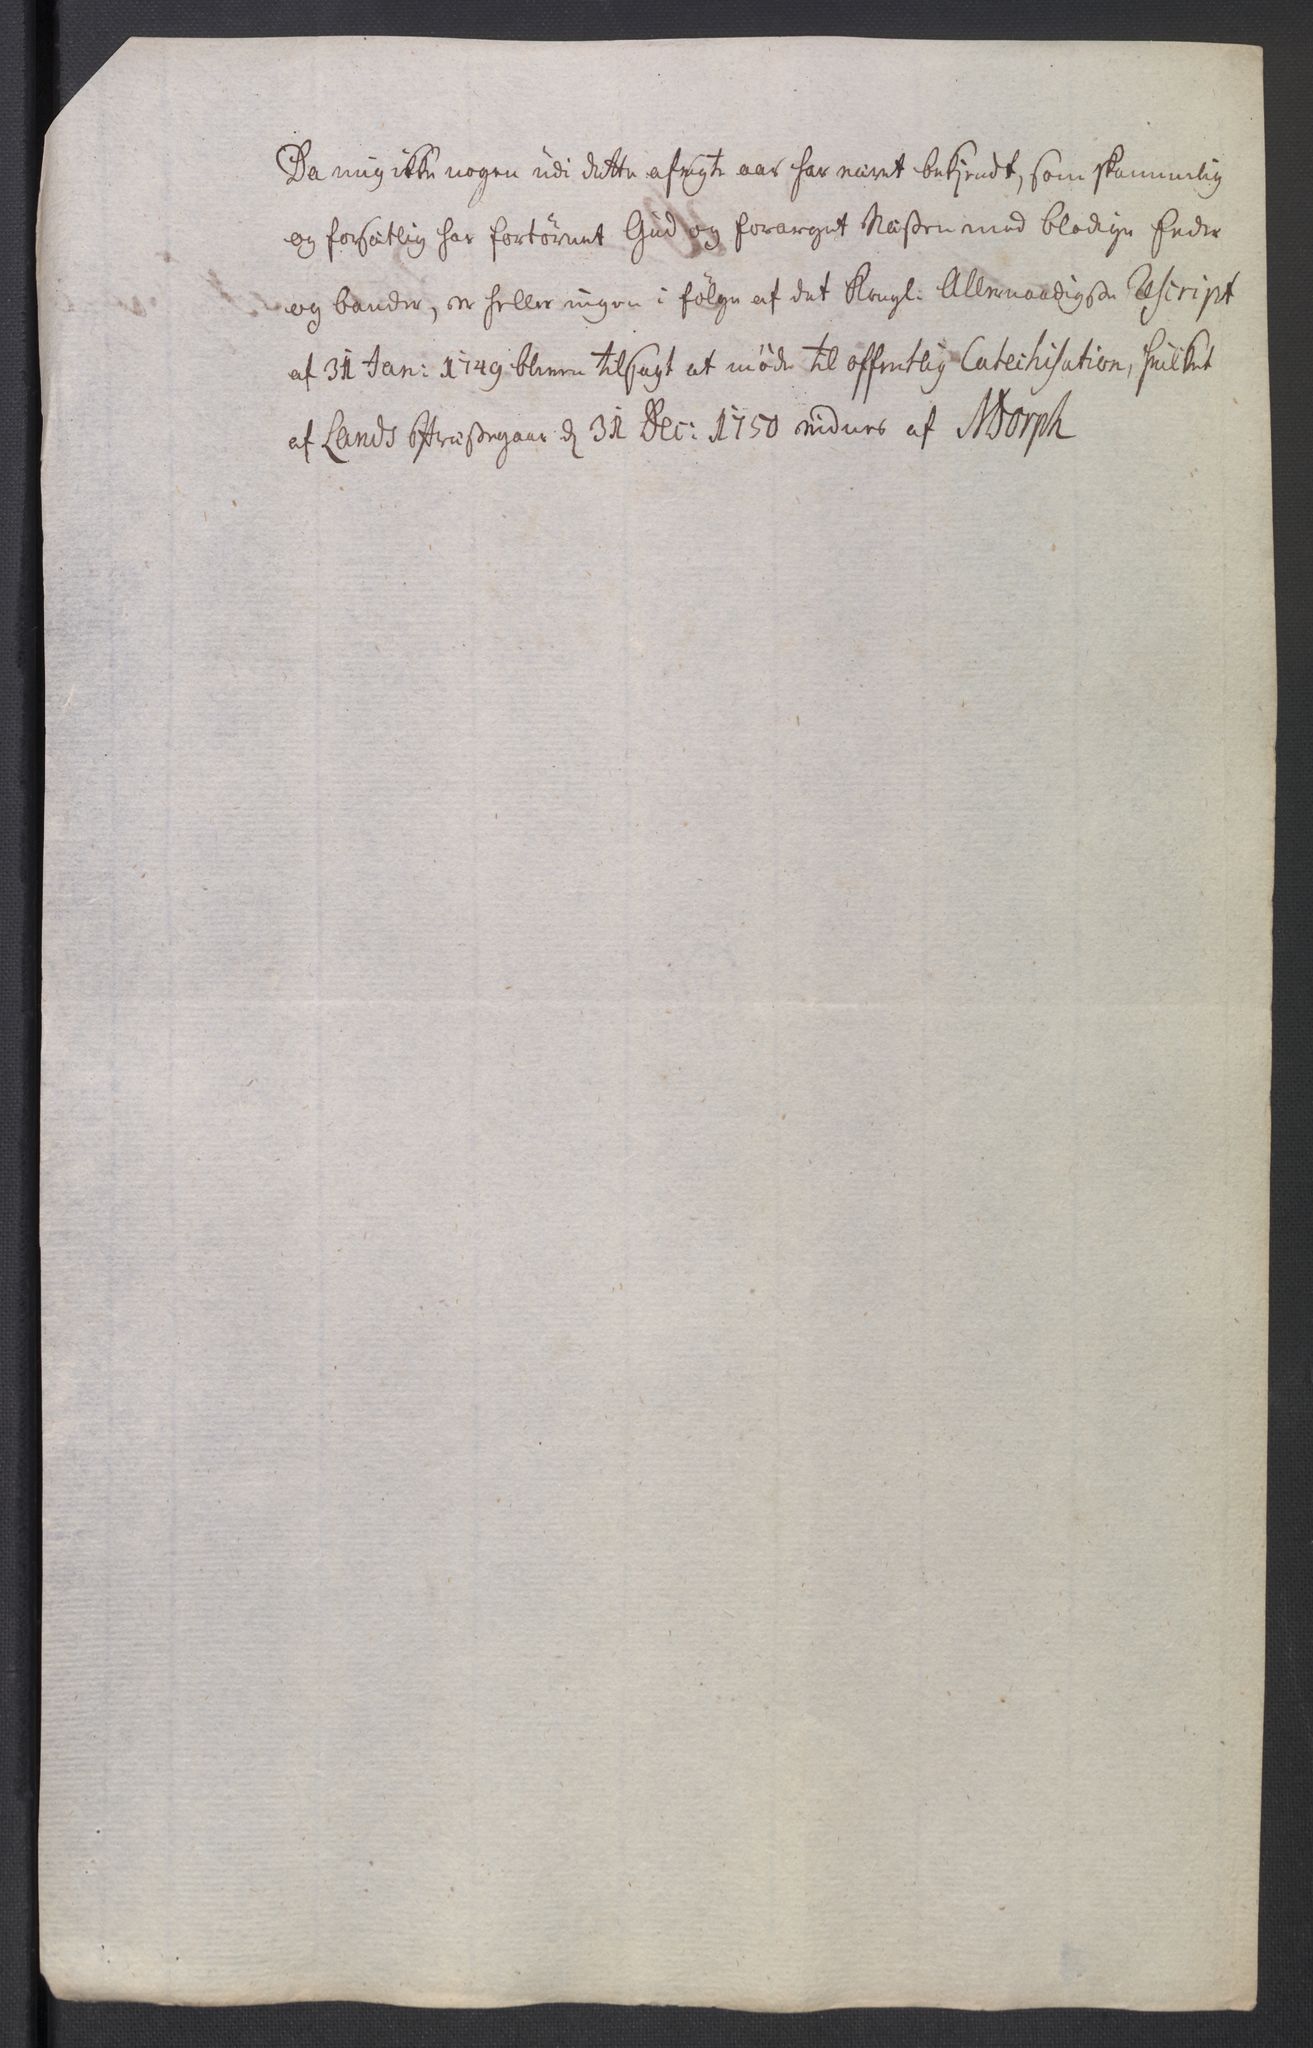 Da mig ikke nogen udi dette afvigte aar har været bekjendt, som skammelig
og forsætlig har fortörnet Gud og forarget Næsten med blodige Eeder
og bander, er heller ingen i fölge af det Kongl: Allernaadigste Rescript
af 31 Jan: 1749 bleven tilsagt at möde til offentlig Catechisation, hvilket
af Lands Præstegaar d 31 Dec: 1750 vidnes af NDorph